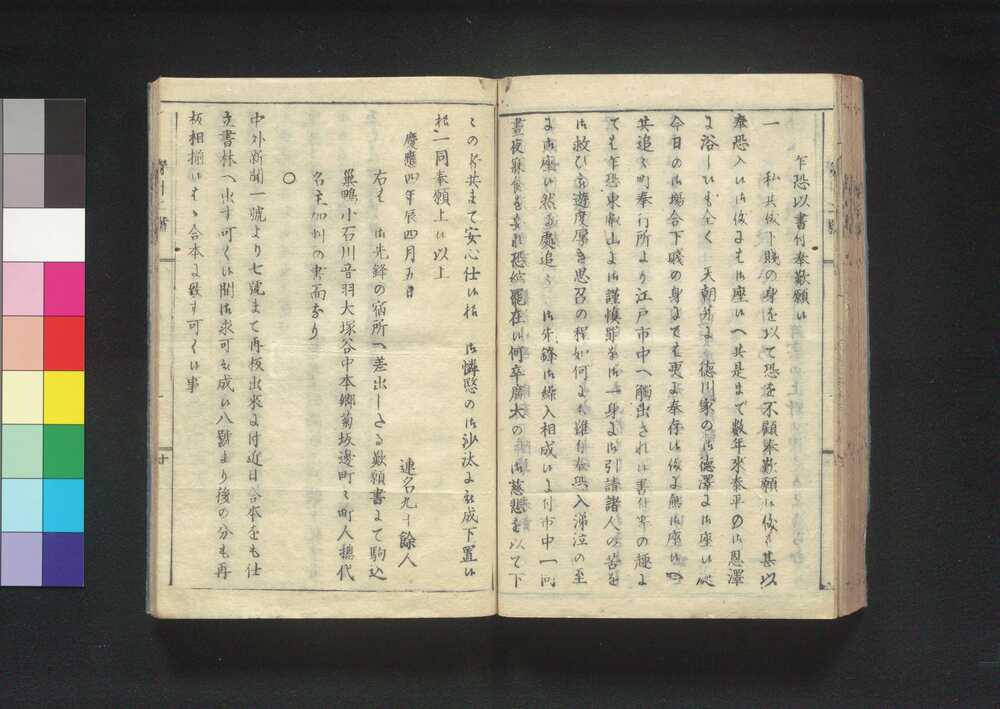 乍恐以書付奉歎願候
一 私共儀下賎の身を以て恐をも不顧奉歎願候儀は甚以
奉恐入候儀には御座候へ共是まで数年来泰平の御恩澤
に浴し候も全く 天朝并に 徳川家の御徳澤に御座候処
今日の御場合下賎の身にても更に奉存候儀は無御座候
其追々町奉行所より江戸市中へ觸出され候書付等の趣に
ても乍恐東叡山に御謹慎罪を御一身に御引諸人の苦を
御救ひ被遊度厚き思召の程如何にも難有奉恐入涕泣の至
に御座候然る處追々 御先鋒御繰入相成候に付市中一同
晝夜寐食を忘れ恐縮罷在候何卒廣大の 御慈悲を以て下
々の者共まで安心仕候様 御憐愍の御沙汰に被成下置候
様一同奉願上候以上
慶應四年辰四月五日
連名九十餘人
右は 御先鋒の宿所へ差出したる歎願書にて駒込
巣鴨小石川音羽大塚谷中本郷菊坂邊町々町人惣代
名主加判の書面なり
○
中外新聞一號より七號まて再板出来に付近日合本をも仕
立書林へ出す可く候間御求可被成候八號より後の分も再
板相揃はゝ合本に致す可く候事
十